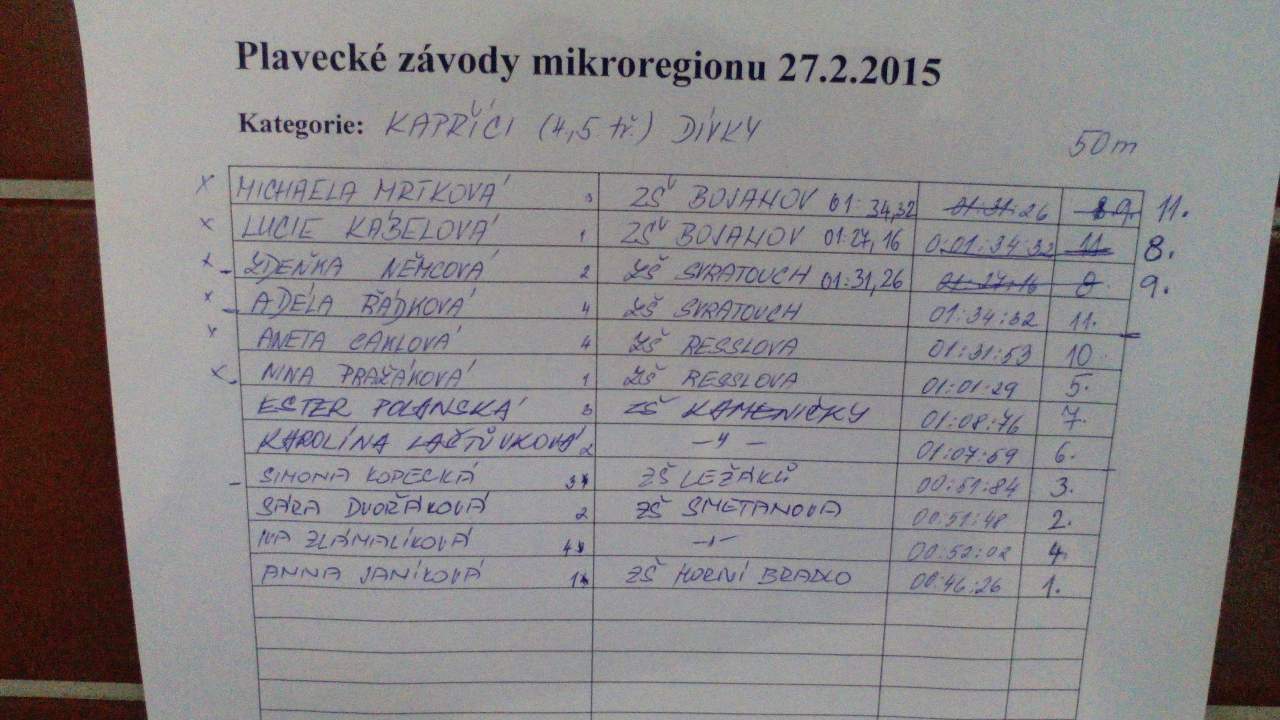 Plavecké závody mikroregionu 27.2.2015
Kategorie: KAPŘÍCI (4,5 tř.) DÍVKY
50m
x MICHAELA MRTKOVÁ 3 ZŠ BOJANOV 01:34,32 01:31:26 9. 11.
x LUCIE KÁBELOVÁ 1 ZŠ BOJANOV 01:27,16 0:01:34:32 11 8.
x ZDEŇKA NĚMCOVÁ 2 ZŠ SVRATOUCH 01:31,26 01:27:16 8. 9.
x ADÉLA ŘÁDKOVÁ 4 ZŠ SVRATOUCH 01:34:32 11.
x ANETA CAKLOVÁ 4 ZŠ RESSLOVA 01:31:53 10
x NINA PRAŽÁKOVÁ 1 ZŠ RESSLOVA 01:01:29 5.
ESTER POLANSKÁ 3 ZŠ KAMENIČKY 01:08:76 7.
KAROLÍNA LAŠTŮVKOVÁ 2 –"– 01:07:59 6.
SIMONA KOPECKÁ 3 ZŠ LEŽÁKŮ 00:51:84 3.
SÁRA DVOŘÁKOVÁ 2 ZŠ SMETANOVA 00:51:48 2.
IVA ZLÁMALÍKOVÁ 4 –"– 00:52:02 4.
ANNA JANÍKOVÁ 1 ZŠ HORNÍ BRADLO 00:46:26 1.